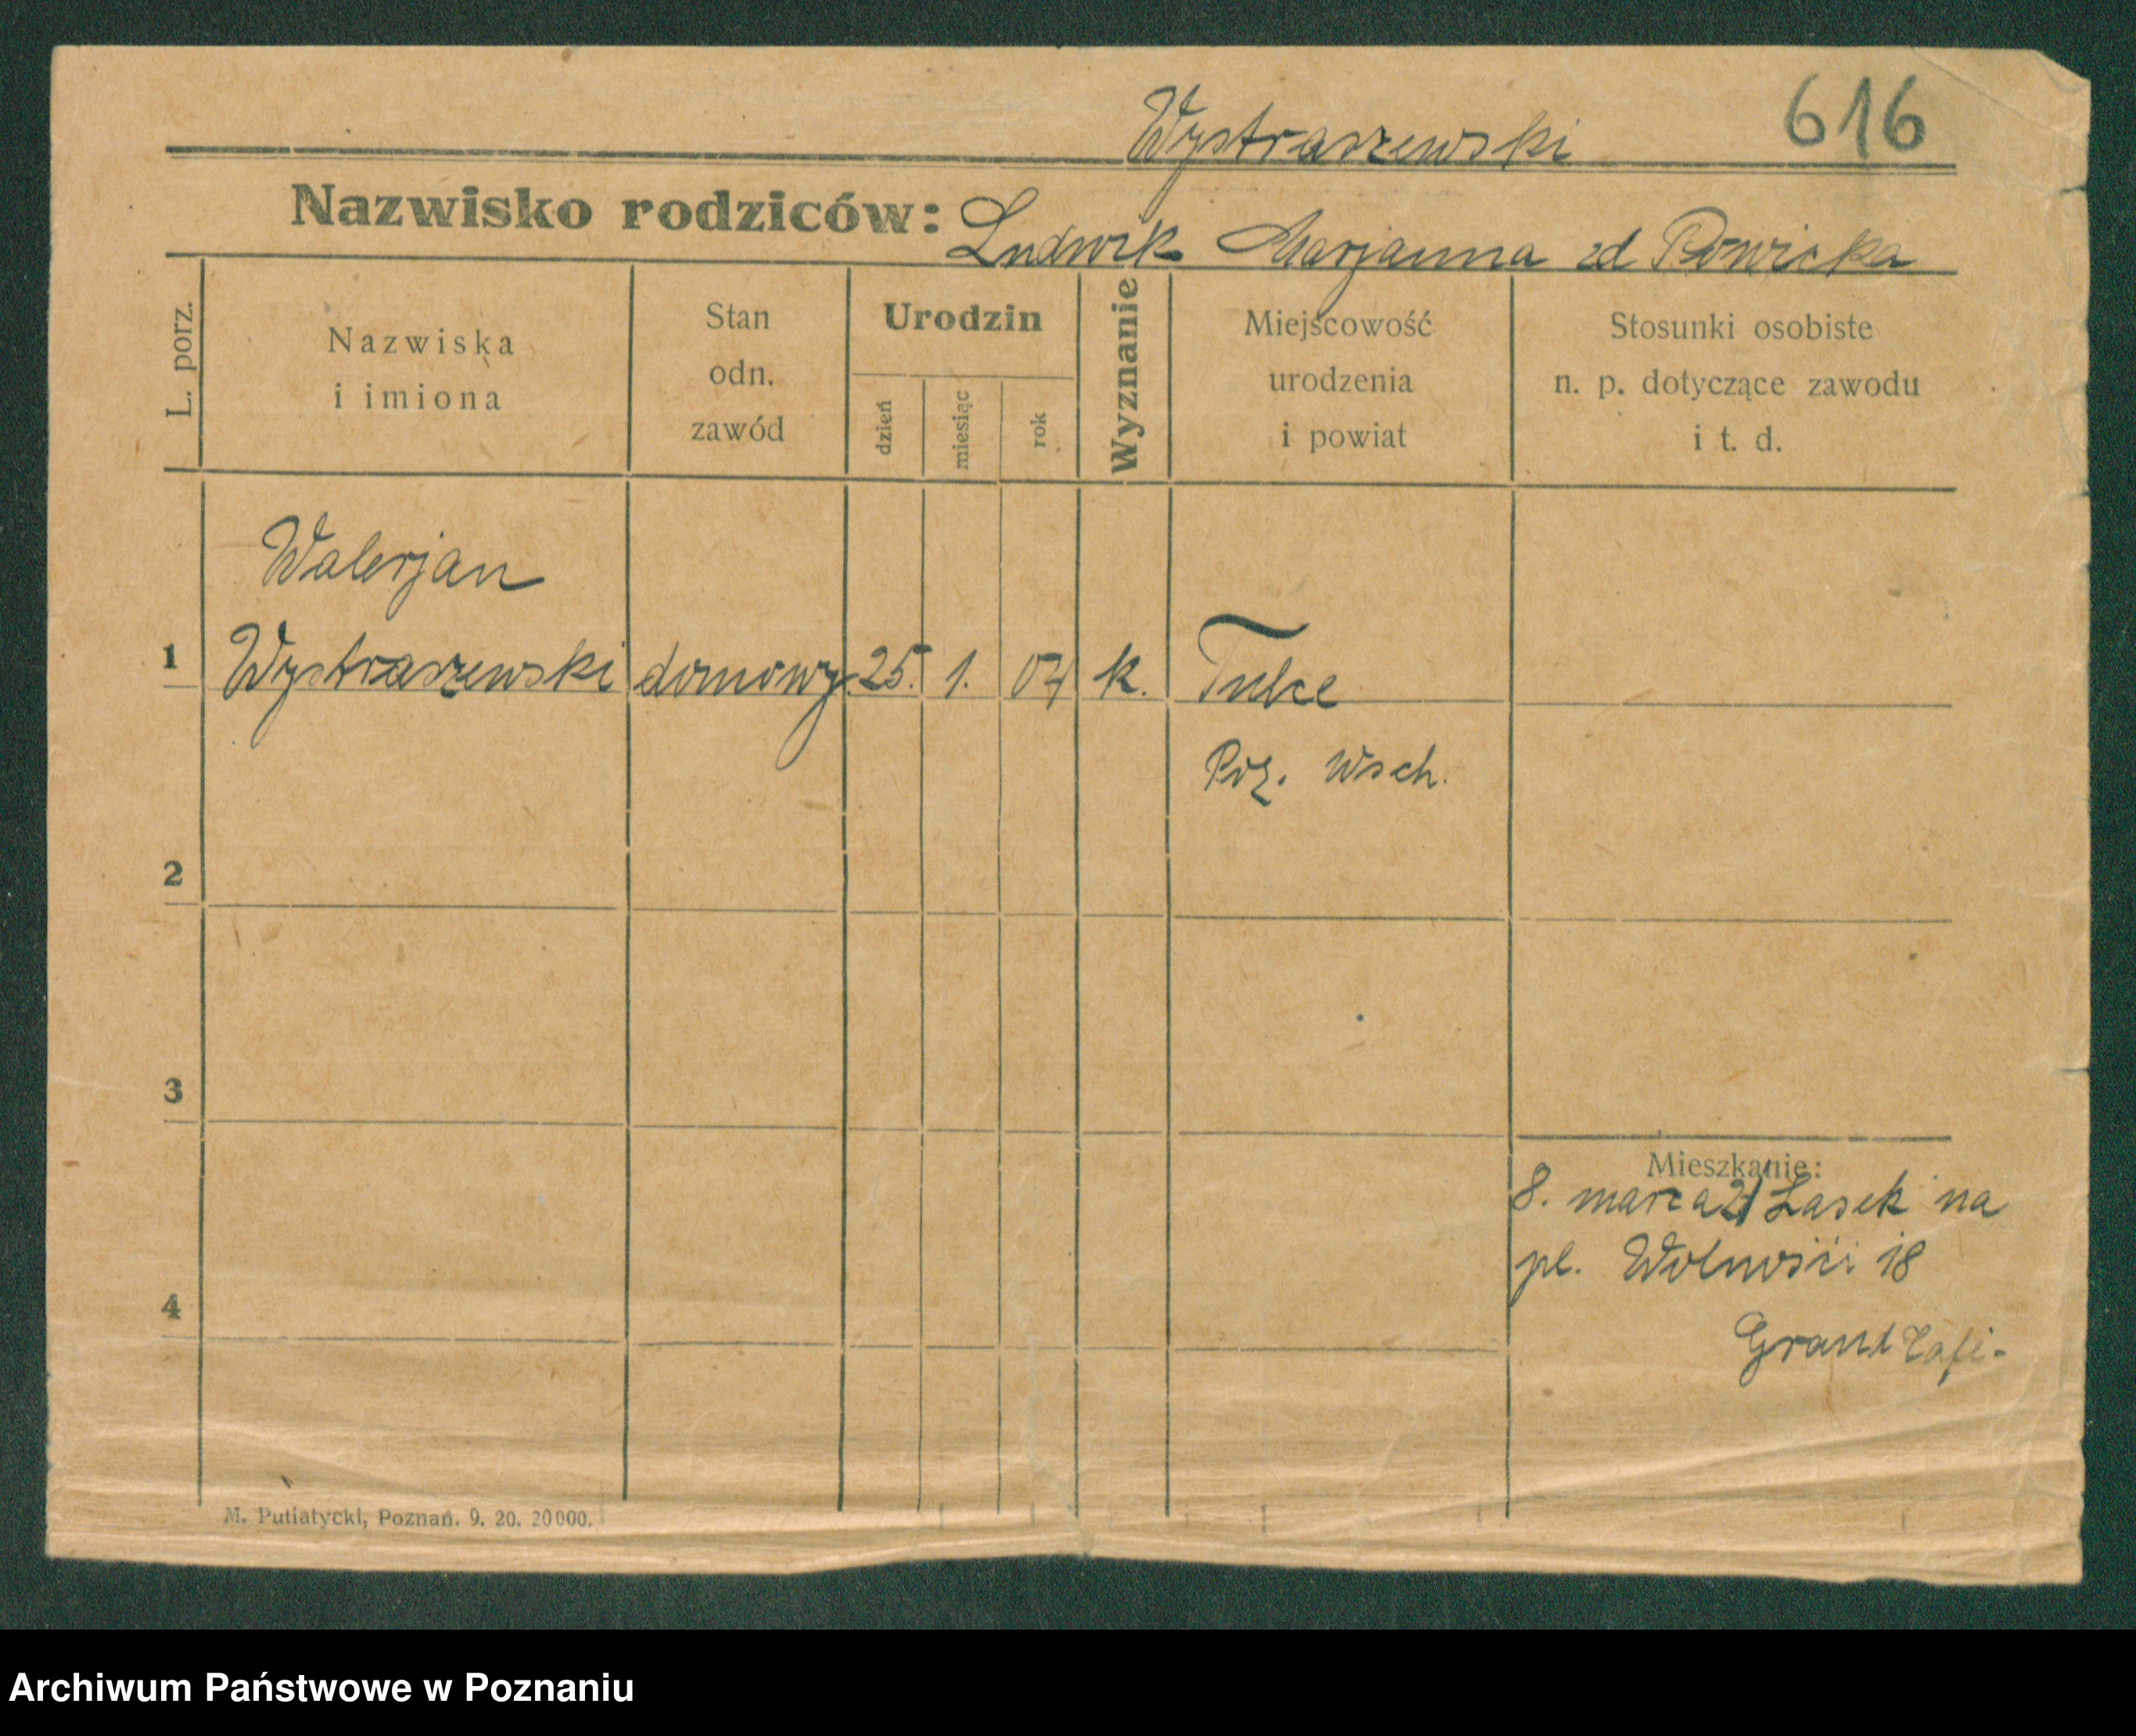 616
Wystraszewski
Nazwisko rodziców: Ludwik Marjanna zd
L. porz.
Nazwiska
i imiona
Stan
odn.
zawód
Urodzin
dzień
miesiąc
rok
Wyznanie
Miejscowość
urodzenia
i powiat
Stosunki osobiste
n. p. dotyczące zawodu
i t. d.
Walerjan
1 Wystraszewski domowy 25. 1. 04 k. Tulce
Poz. Wsch.
2
3
Mieszkanie:
8. marca 21 Lasek na
pl. Wolności 18
4
Grand
M. Putiatycki, Poznań. 9. 20. 20000.
Archiwum Państwowe w Poznaniu